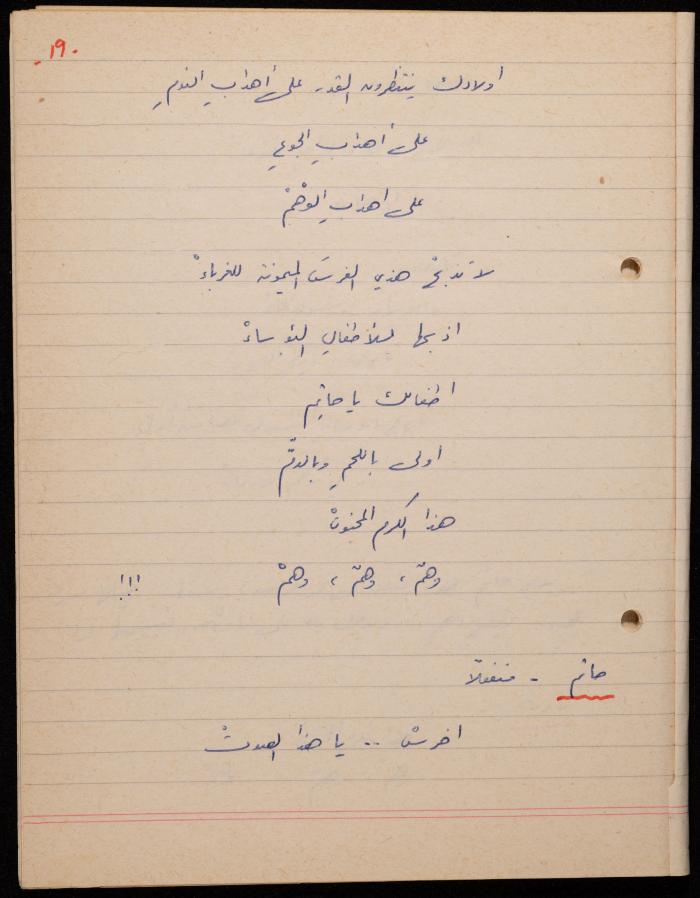 .١٩.
اولادك ينتظرون القدر على أهدابِ النومِ
على أهدابِ الجوعِ
على اهدابِ الوهْمْ
لا تذبحْ هذي الفرسَ الميمونة للغرباءْ
اذبحها للأطفالِ البؤساءْ
اطفالك يا حاتِم
أولى باللحمِ وبالدمّ
هذا الكرم المجنونْ
وهمٌ ، وهمٌ ، وهمْ !!!
حاتم - منفعلاً
اخرسْ .. يا هذا الصوتْ